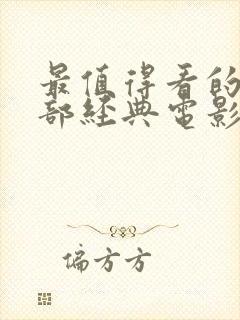 最值得看的
部經典電影
偏方方